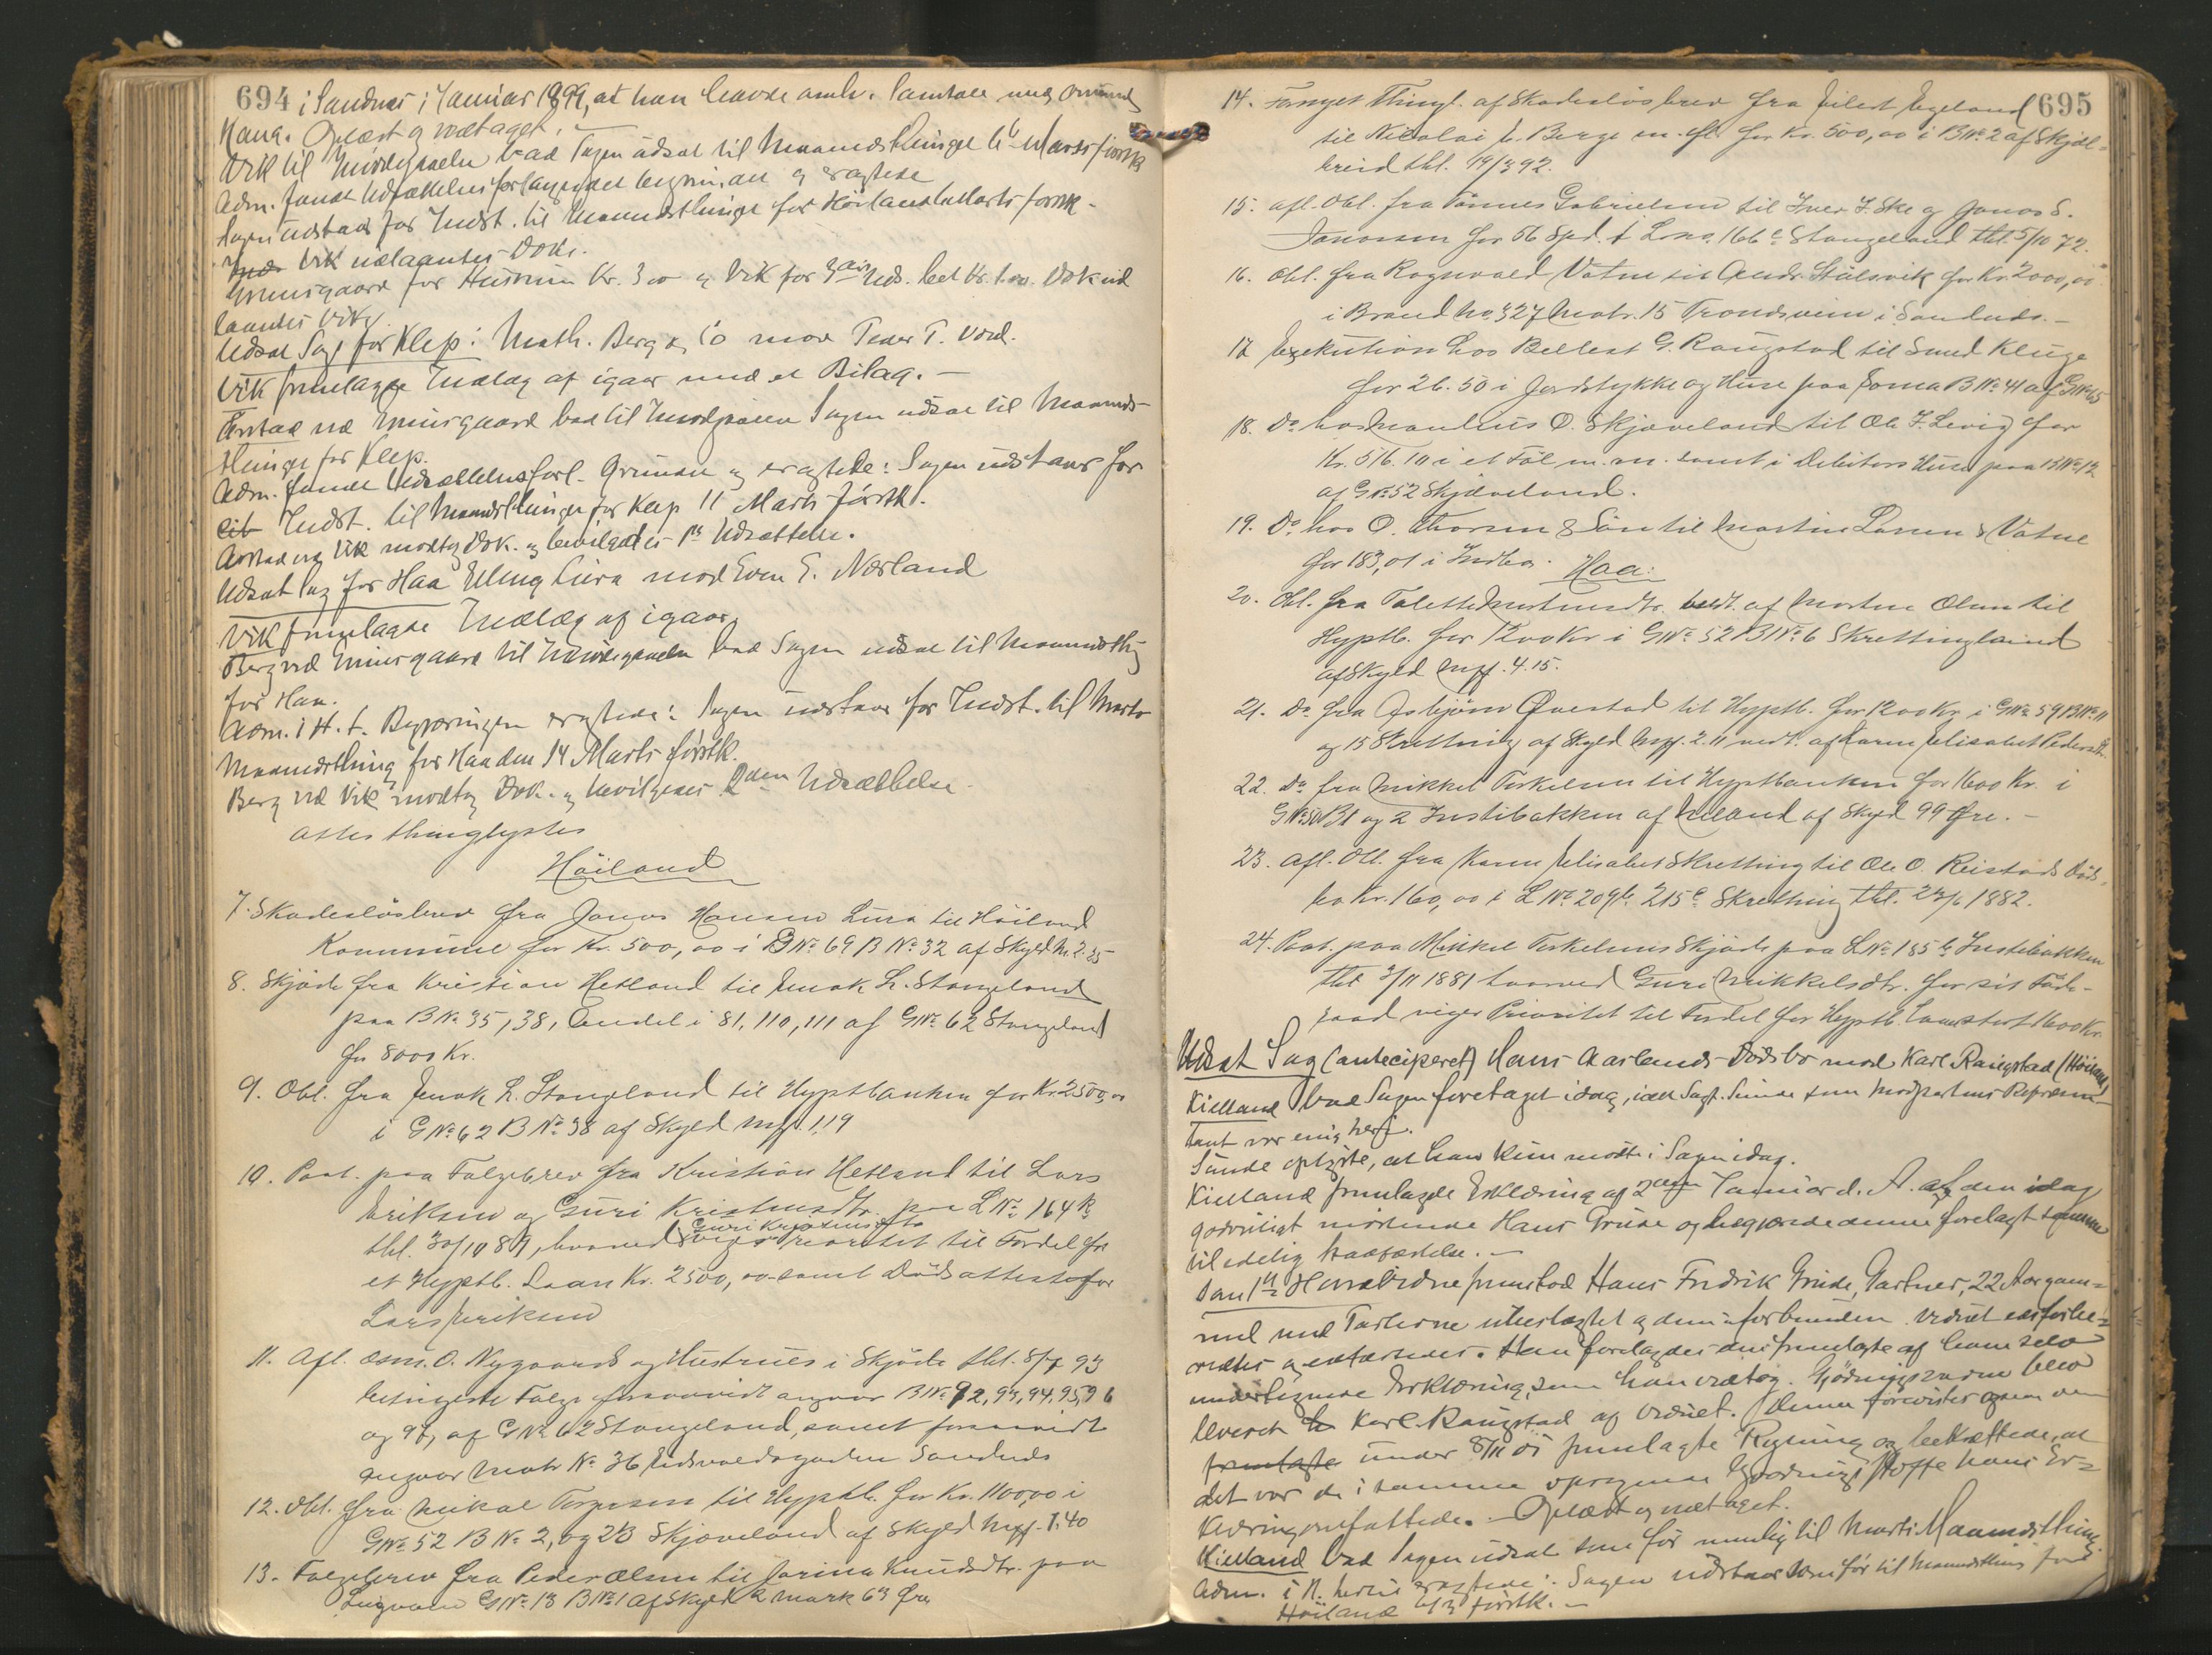 694
i Sandnes i Januar 1899, at han havde Samtale med
Haug. Oplæst og vedtaget.
Vik til Imødegaaelse bad Sagen udsat til Maanedsthinget Marts førstk
Adm. fandt Udsættelsesforlangendet begrundet og eragtede
Sagen udstaar for Indst. til Maanedsthinge for Höiland Marts førstk.
Vik udlaantes Dok.
Grimsgaard for Kr. 3 og Vik for Uds. bet Kr. Dok ud
laantes Vik.
Udsat Sag for Klep: Math. Berg & Co mod Peder T.
Vik fremlagde Indlæg af igaar med et Bilag.-
ved Grimsgaard bad til Imødegaaelse Sagen udsat til Maaneds-
thinge for Klep.
Adm. fandt Udsættelsesforl. Grundet og eragtede: Sagen udstaar for
Indst. til Maanedsthinge for Klep 11 Marts førstk.
ved Vik modtog Dok. og bevilgedes 1ste Udsættelse.
Udsat Sag for Haa Elling Lura mod Sven E. Nærland
Vik fremlagde Indlæg af igaar
Berg ved Grimsgaard til Imødegaaelse bad Sagen udsat til Maanedsthing
for Haa.
Adm. i H. t. Begjæringen eragtede: Sagen udstaar for Indst. til Marts
Maanedsthing for Haa den 14 Marts førstk.
Berg ved Vik modtog Dok. og bevilgedes 2den Udsættelse.
Attes thinglystes
Höiland
7. Skadeslösbrev fra Jonas Hansen Lura til Höiland
Kommune for Kr. 500,00 i GNo 69 B No 32 af Skyld M. 2.35
8. Skjöde fra Kristian Hetland til Enok L. Stangeland
paa B No 35, 38, Andel i 81, 110, 111 af GNo 62 Stangeland
for 8000 Kr.
9. Obl. fra Enok L. Stangeland til Hyptbanken for Kr. 2500,00
i GNo 62 B No 38 af Skyld Mk. 1,19
10. Paat. paa Folgebrev fra Kristian Hetland til Lars
Eriksen og Guri Kristensdtr. paa LNo 164 k
thl. 30/10 89, hvorved Guri Kristensdtr viger Prioritet til Fordel for
et Hyptb. Laan Kr. 2500,00 samt Dödsattest for
Lars Eriksen
11. Afl. Asm. O. Nygaards og Hustrues i Skjöde thl. 8/7 93
betingede Folge forsaavidt angaar BNo 92, 93, 94, 95, 96
og 97, af GNo 62 Stangeland, samt forsaavidt
angaar Matr No 36 Eidsvoldsgaden Sandnes
12. Obl. fra Mikal Torgersen til Hyptb. for Kr. 1100,00 i
GNo 52 B No 2, og 23 Skjæveland af Skyld Mk. 1.40
13. Folgebrev fra Peder Ælsen til Jorina Knudsdtr. paa
Lugvaen GNo 13 B No 1 af Skyld 2 mark 63 Øre
695
14. Fornyet Thingl. af Skadeslösbrev fra Eilert Egeland
til Nicolai E. Berge m. fl. for Kr. 500,00 i BNo 2 af Skjæl-
breid thl. 19/3 92.
15. Afl. Obl. fra Tönnes Gabrielsen til Iver J. Ske og Jonas S.
Jonassen for 56 Spd. i Lno. 166 c Stangeland thl. 5/10 72.
16. Obl. fra Ragnvald Vatne til Andr. Stålsvik for Kr. 2000,00
i Brand No 327 Matr. 15 Trondsveien i Sandnes.-
17 Exekution hos Bellest G. Raugstad til Smed Kluge
for 26.50 i Jordstykke og Huse paa Soma BNo 41 af GNo 65
18. Do hos Maulius O. Skjæveland til Ole J. Levig for
Kr. 516.10 i et Föl m.m. samt i Debitors Huse paa BNo 12
af GNo 52 Skjæveland.
19. Do hos O. Thorsen & Sön til Martin Larsen & Vatne
for 183,01 i Indbo.
Haa:
20. Obl. fra Tolette Mortensdtr. vedt. af Morten Olsen til
Hyptb. for 1200 Kr i GNo 52 BNo 6 Skrettingland
af Skyld Mk. 4.15.
21. Do fra Asbjörn Qvestad til Hyptb. for 1200 Kr i GNo 59 BNo 11
og 15 Skretting af Skyld Mk. 2.11 vedt. af Karen Elisabet Pedersdtr.
22. Do fra Mikkel Torkelsen til Hyptbanken for 1600 Kr. i
GNo 50 B 1 og 2 Instibakken af af Skyld 99 Øre.-
23. Afl. Obl. fra Karen Elisabet Skretting til Ole O. Reistads Döds-
bo Kr. 160,00 i LNo 209 b 215 c Skretting thl. 1882.
24. Paat. paa Mikkel Torkelsens Skjöde paa LNo 185 b Instibakken
thl 3/11 1881 hvorved Guri Mikkelsdtr. for sit Föde-
raad viger Prioritet til Fordel for Hyptb. Laan stort 1600 Kr.
Udsat Sag (anteciperet) Hans Aarlands Dödsbo mod Karl Raugstad (Höiland)
Kielland bad Sagen foretaget idag, idet Sagf. Sunde som Modpartens Repræsen-
tant var enig heri.
Sunde oplyste, at han kun mödte i Sagen idag.
Kielland fremlagde Erklæring af 2den Januar d. A. af den idag
godvilligt mödende Hans Grude og begjærede denne forelagt samme
til edelig Stadfæstelse.-
Som 1ste Hovedvidne fremstod Hans Fredrik Grude, Gartner, 22 Aar gam-
mel med Parterne ubeslægtet og dem uforbunden. Vidnet edsforbe-
redtes og edfæstedes. Han forelagdes den fremlagte af ham selv
underlignede Erklæring, som han vedtog. Gjödningsvarene blev
leveret Karl Raugstad af Vidnet. Denne forevistes ogsaa den
fremlagte under 8/11 05 fremlagte Regning og bekræftede, at
det var de i samme opregnede Gjödningsstoffe hans Er-
klæring omfattede. - Oplæst og vedtaget.
Kielland bad Sagen udsat som för nemlig til Marts Maanedsthing.
Adm. i H. hertil eragtede: Sagen udstaar som för til Maanedsthing for
Höiland førstk.-